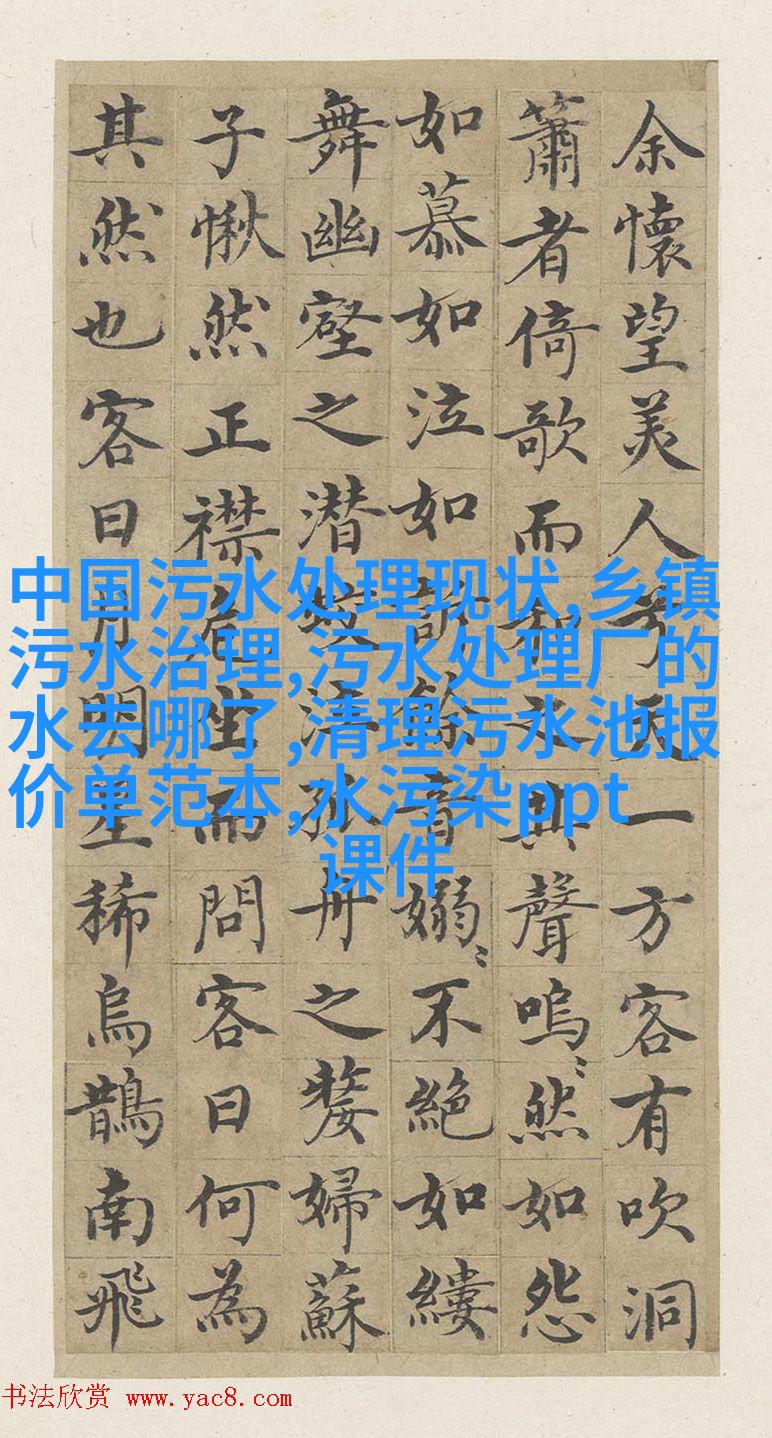 余懷望美人兮天一方客有吹洞
簫者倚歌而和之其聲嗚〻然如怨
如慕如泣如訴餘音嫋〻不絕如縷
舞幽壑之潛蛟泣孤舟之嫠婦蘇
子愀然正襟危坐而問客曰何為
其然也客曰月明星稀烏鵲南飛
中国污水处理现状,乡镇
污水治理,污水处理厂的
水去哪了,清理污水池报
价单范本,水污染ppt
课件
书法欣赏 www.yac8.com